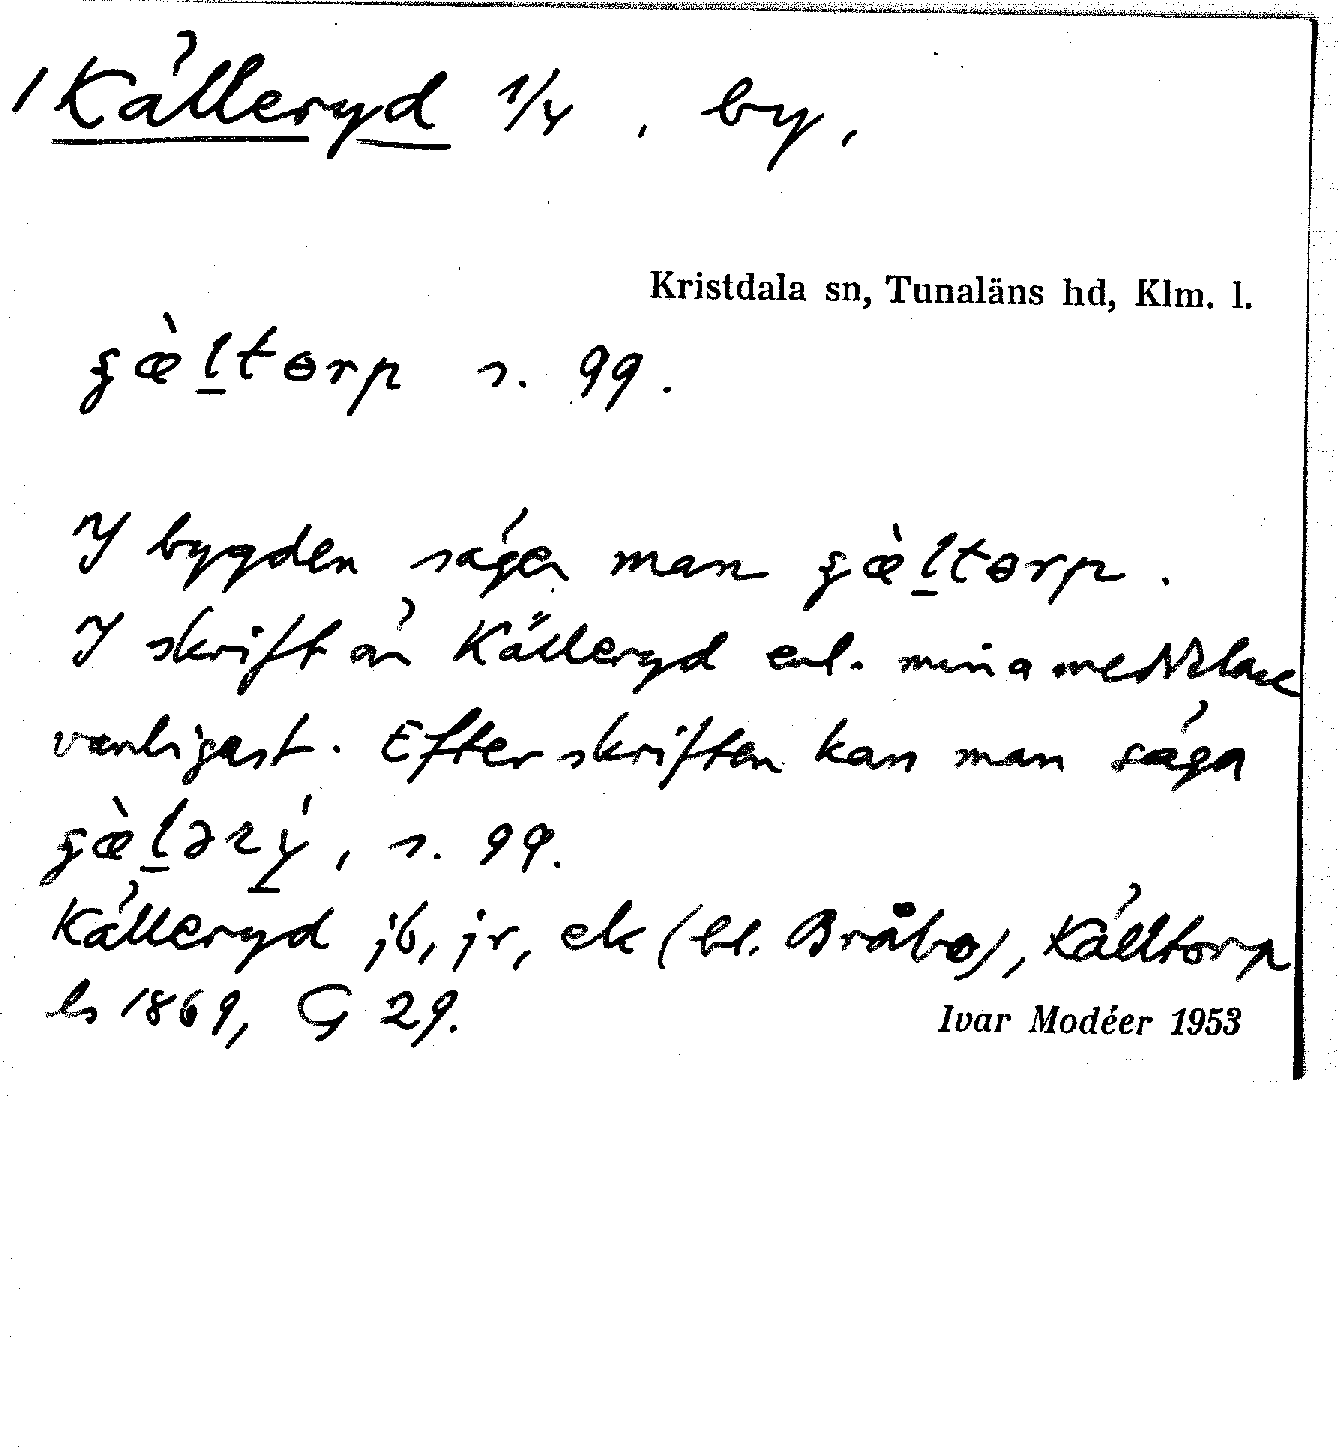 / Källeryd 1/4, by,
Kristdala sn, Tunaläns hd, Klm. l.
s. 99.
I bygden säger man
I skrift är Källeryd enl. mina meddelare
vanligast. Efter skriften kan man säga
, s. 99.
Källeryd jb, jr, ek (bl. Bråbo), Källtorp
ls 1869, G 29.
Ivar Modéer 1953